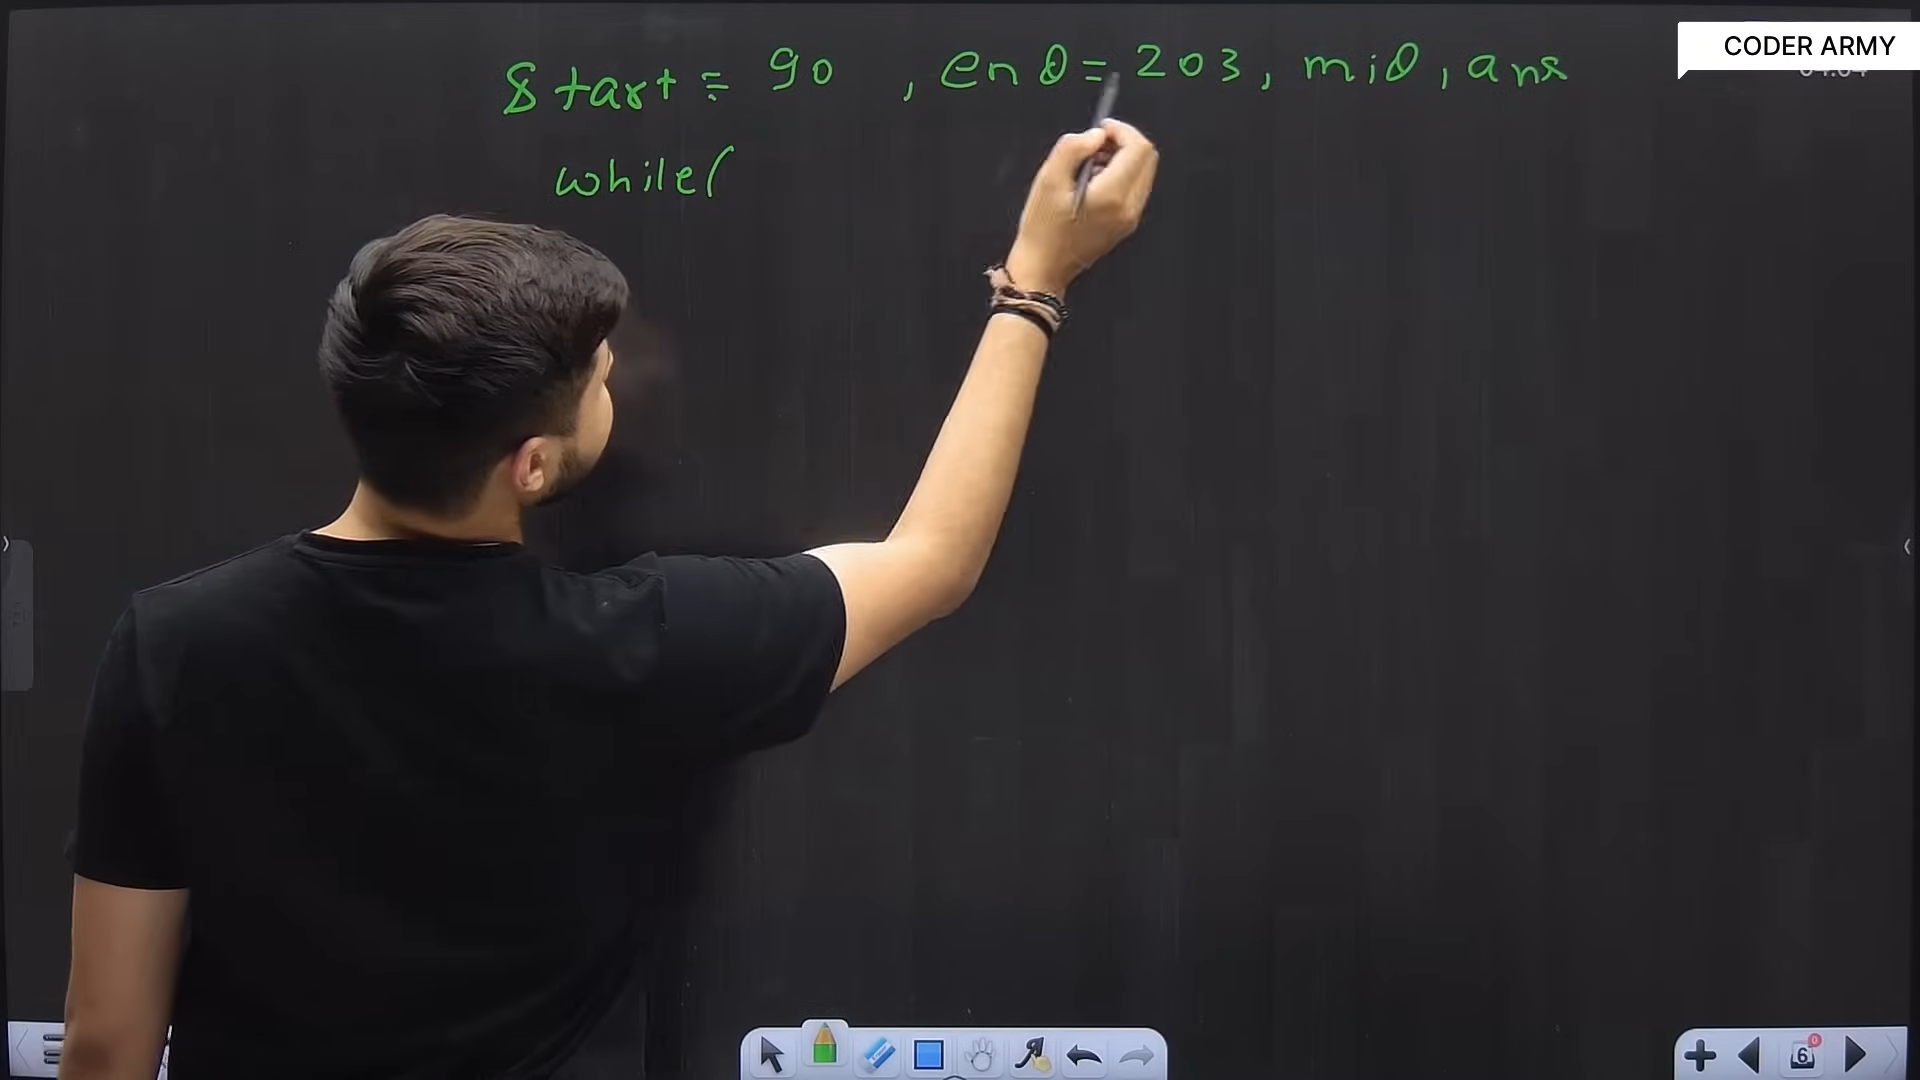 CODER ARMY
start = 90 , end = 203 , mid , ans
while(
6